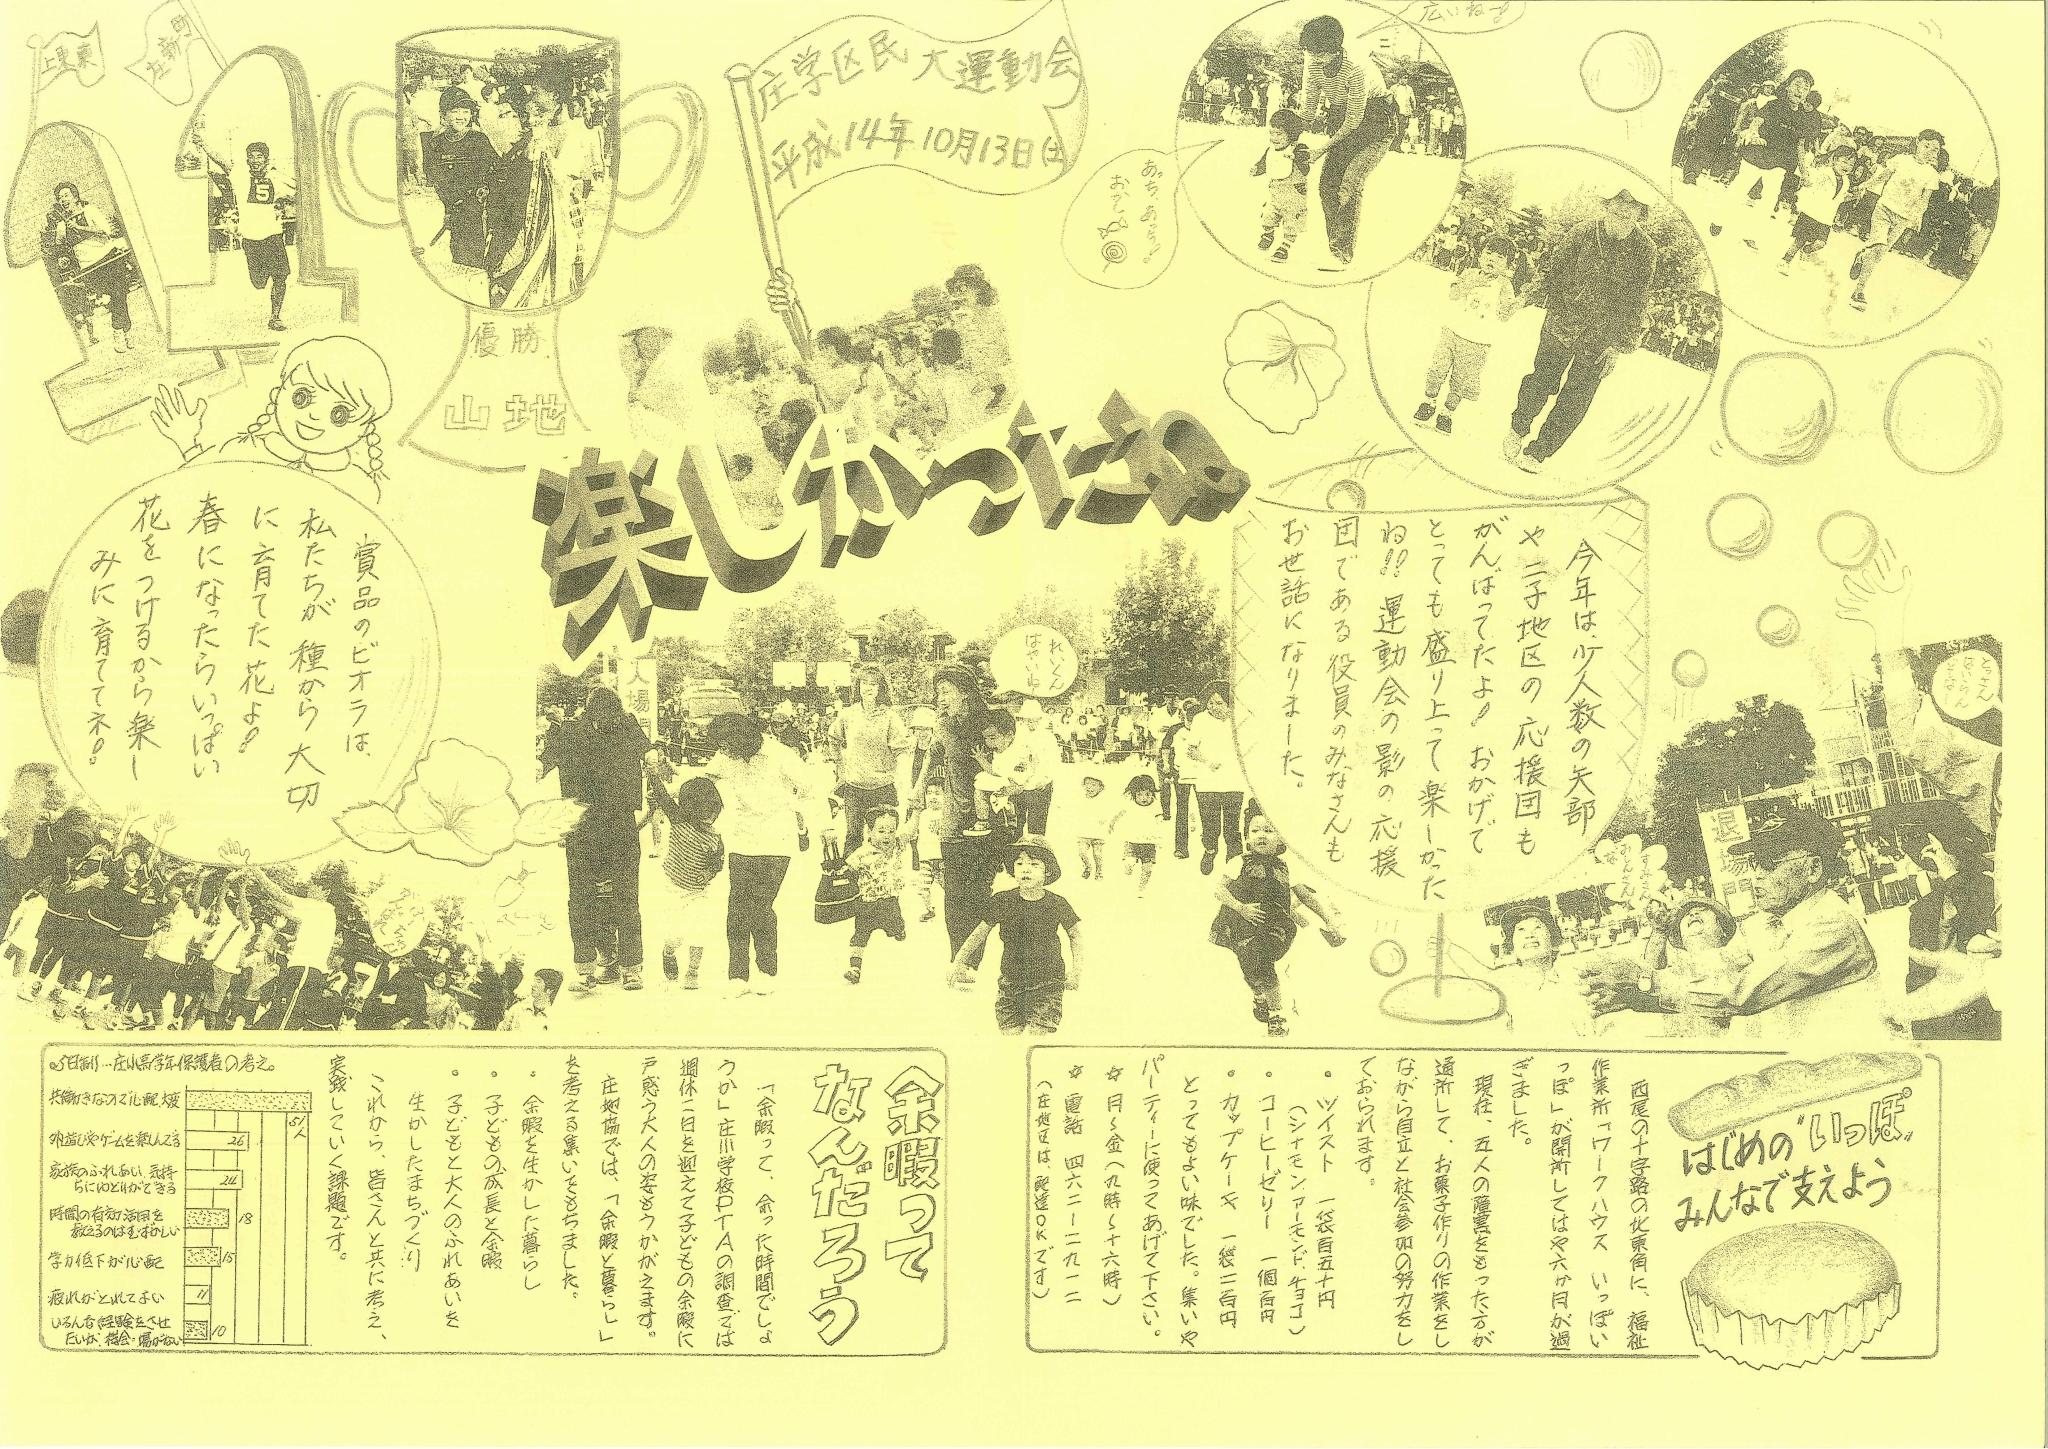 上東東
庄新町
優勝
山地
庄学区民 大運動会
平成14年10月13日(土)
広いねー
あっちあっち!
おや
楽しかったね
賞品のビオラは、
私たちが 種から 大切
に育てた花よ!
春になったらいっぱい
花をつけるから楽し
みに育ててネ!
今年は、少人数の矢部
や二子地区の応援団も
がんばってたよ! おかげで
とっても盛り上って楽しかった
ね!! 運動会の影の応援
団である役員のみなさんも
お世話になりました。
入場門
れいくん
はやいね
退場門
はじめの“いっぽ”
みんなで支えよう
西尾の十字路の北東角に、福祉
作業所「ワークハウス いっぽい
っぽ」が開所してはや六か月が過
ぎました。
現在、五人の障害をもった方が
通所して、お菓子作りの作業をし
ながら自立と社会参加の努力をし
ておられます。
・ツイスト 一袋百五十円
(シナモン、アーモンド、チョコ)
・コーヒーゼリー 一個百円
・カップケーキ 一袋二百円
とってもよい味でした。集いや
パーティーに使ってあげて下さい。
☆月～金(九時～十六時)
☆電話 四六二ー二九一二
(庄地区は、配達OKです)
余暇って
なんだろう
「余暇って、余った時間でしょ
うか」庄小学校PTAの調査では
週休二日を迎えて子どもの余暇に
戸惑う大人の姿もうかがえます。
庄地協では、「余暇と暮らし」
を考える集いをもちました。
・余暇を生かした暮らし
・子どもの成長と余暇
・子どもと大人のふれあいを
生かしたまちづくり
これから、皆さんと共に考え、
実践していく課題です。
5日制…庄小高学年保護者の考え。
共働きなので心配、大変 51人
外遊びやゲームを楽しんでる 26
家族のふれあい、気持
ちにゆとりができる 24
時間の有効活用を
教えるのはむずかしい 18
学力低下が心配 15
疲れがとれてよい 11
いろんな経験をさせ
たいが、機会・場がない 10